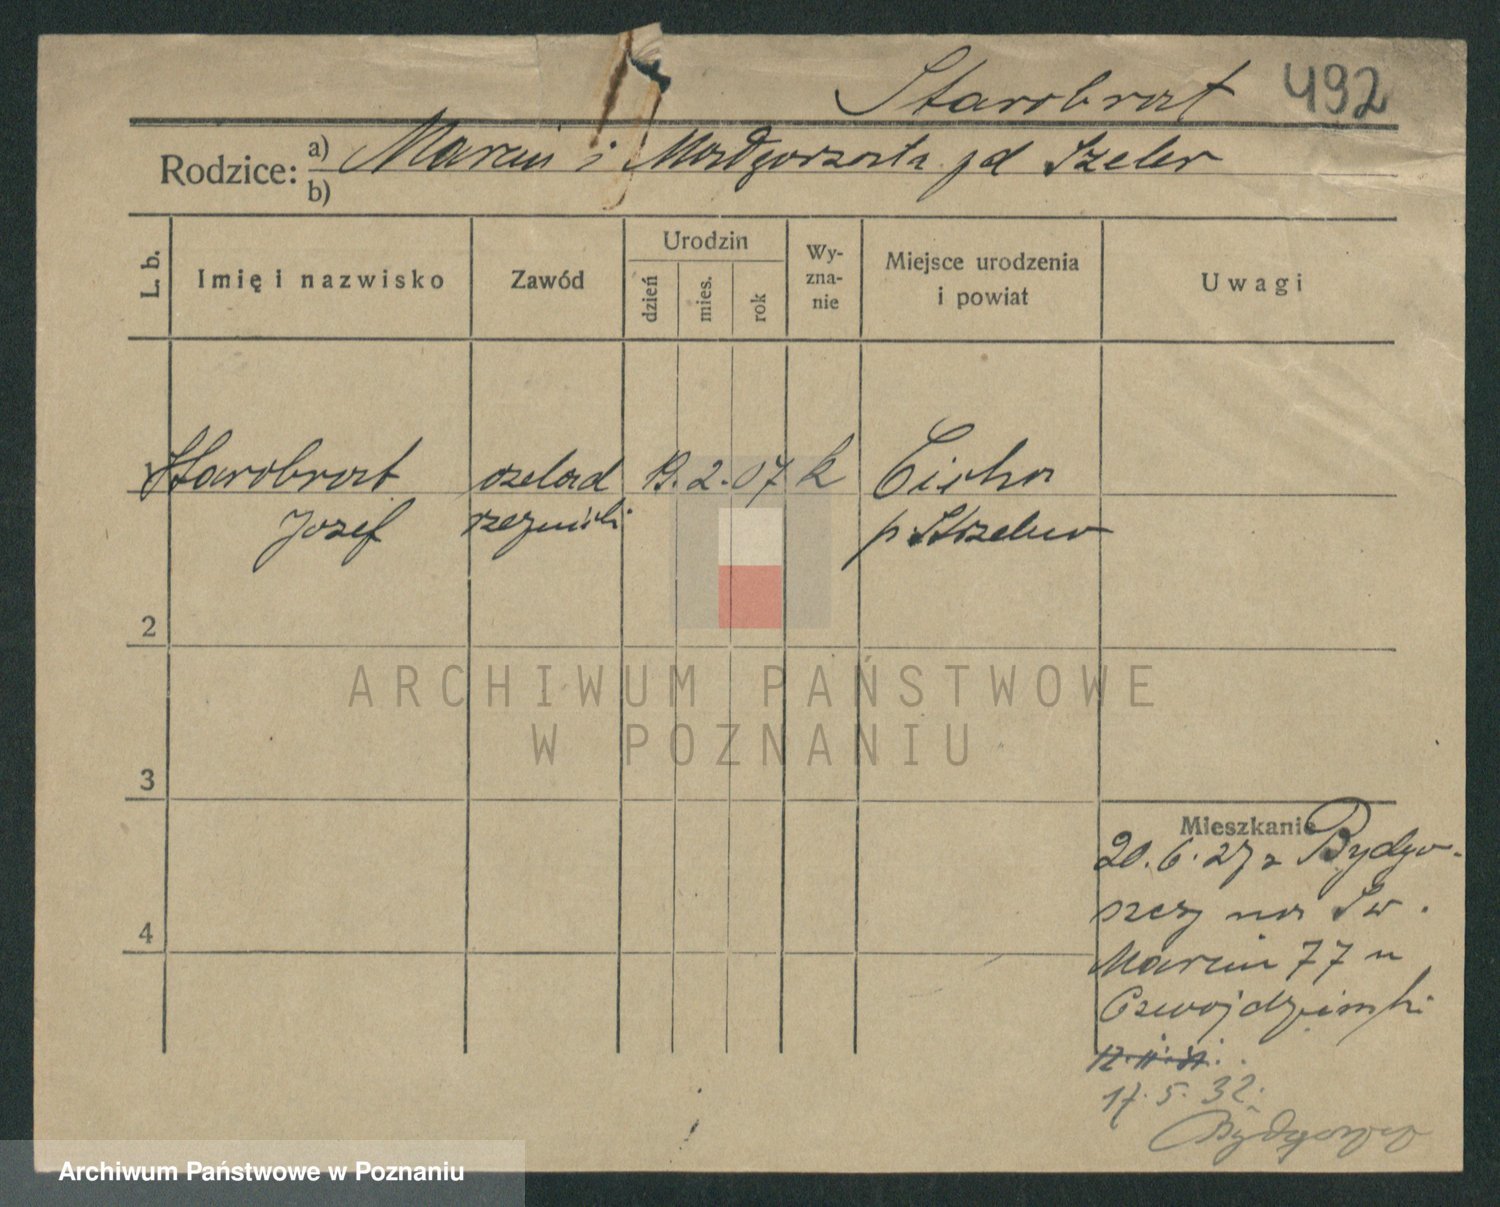 Starobrat 492
Rodzice: a) Marcin i Małgorzata zd Szeler
b)
L. b.
Imię i nazwisko
Zawód
Urodzin
dzień
mies.
rok
Wy-
zna-
nie
Miejsce urodzenia
i powiat
Uwagi
1 Starobrat czelad 19. 2. 07 k Cicha
Józef rzeźnicki p Strzelno
2
3
4
Mieszkanie
20. 6. 27 z Bydgo-
szczy na Św.
Marcin 77 u
Czwojdzinski
17. 5. 32.
Bydgoszcz
ARCHIWUM PAŃSTWOWE
W POZNANIU
Archiwum Państwowe w Poznaniu